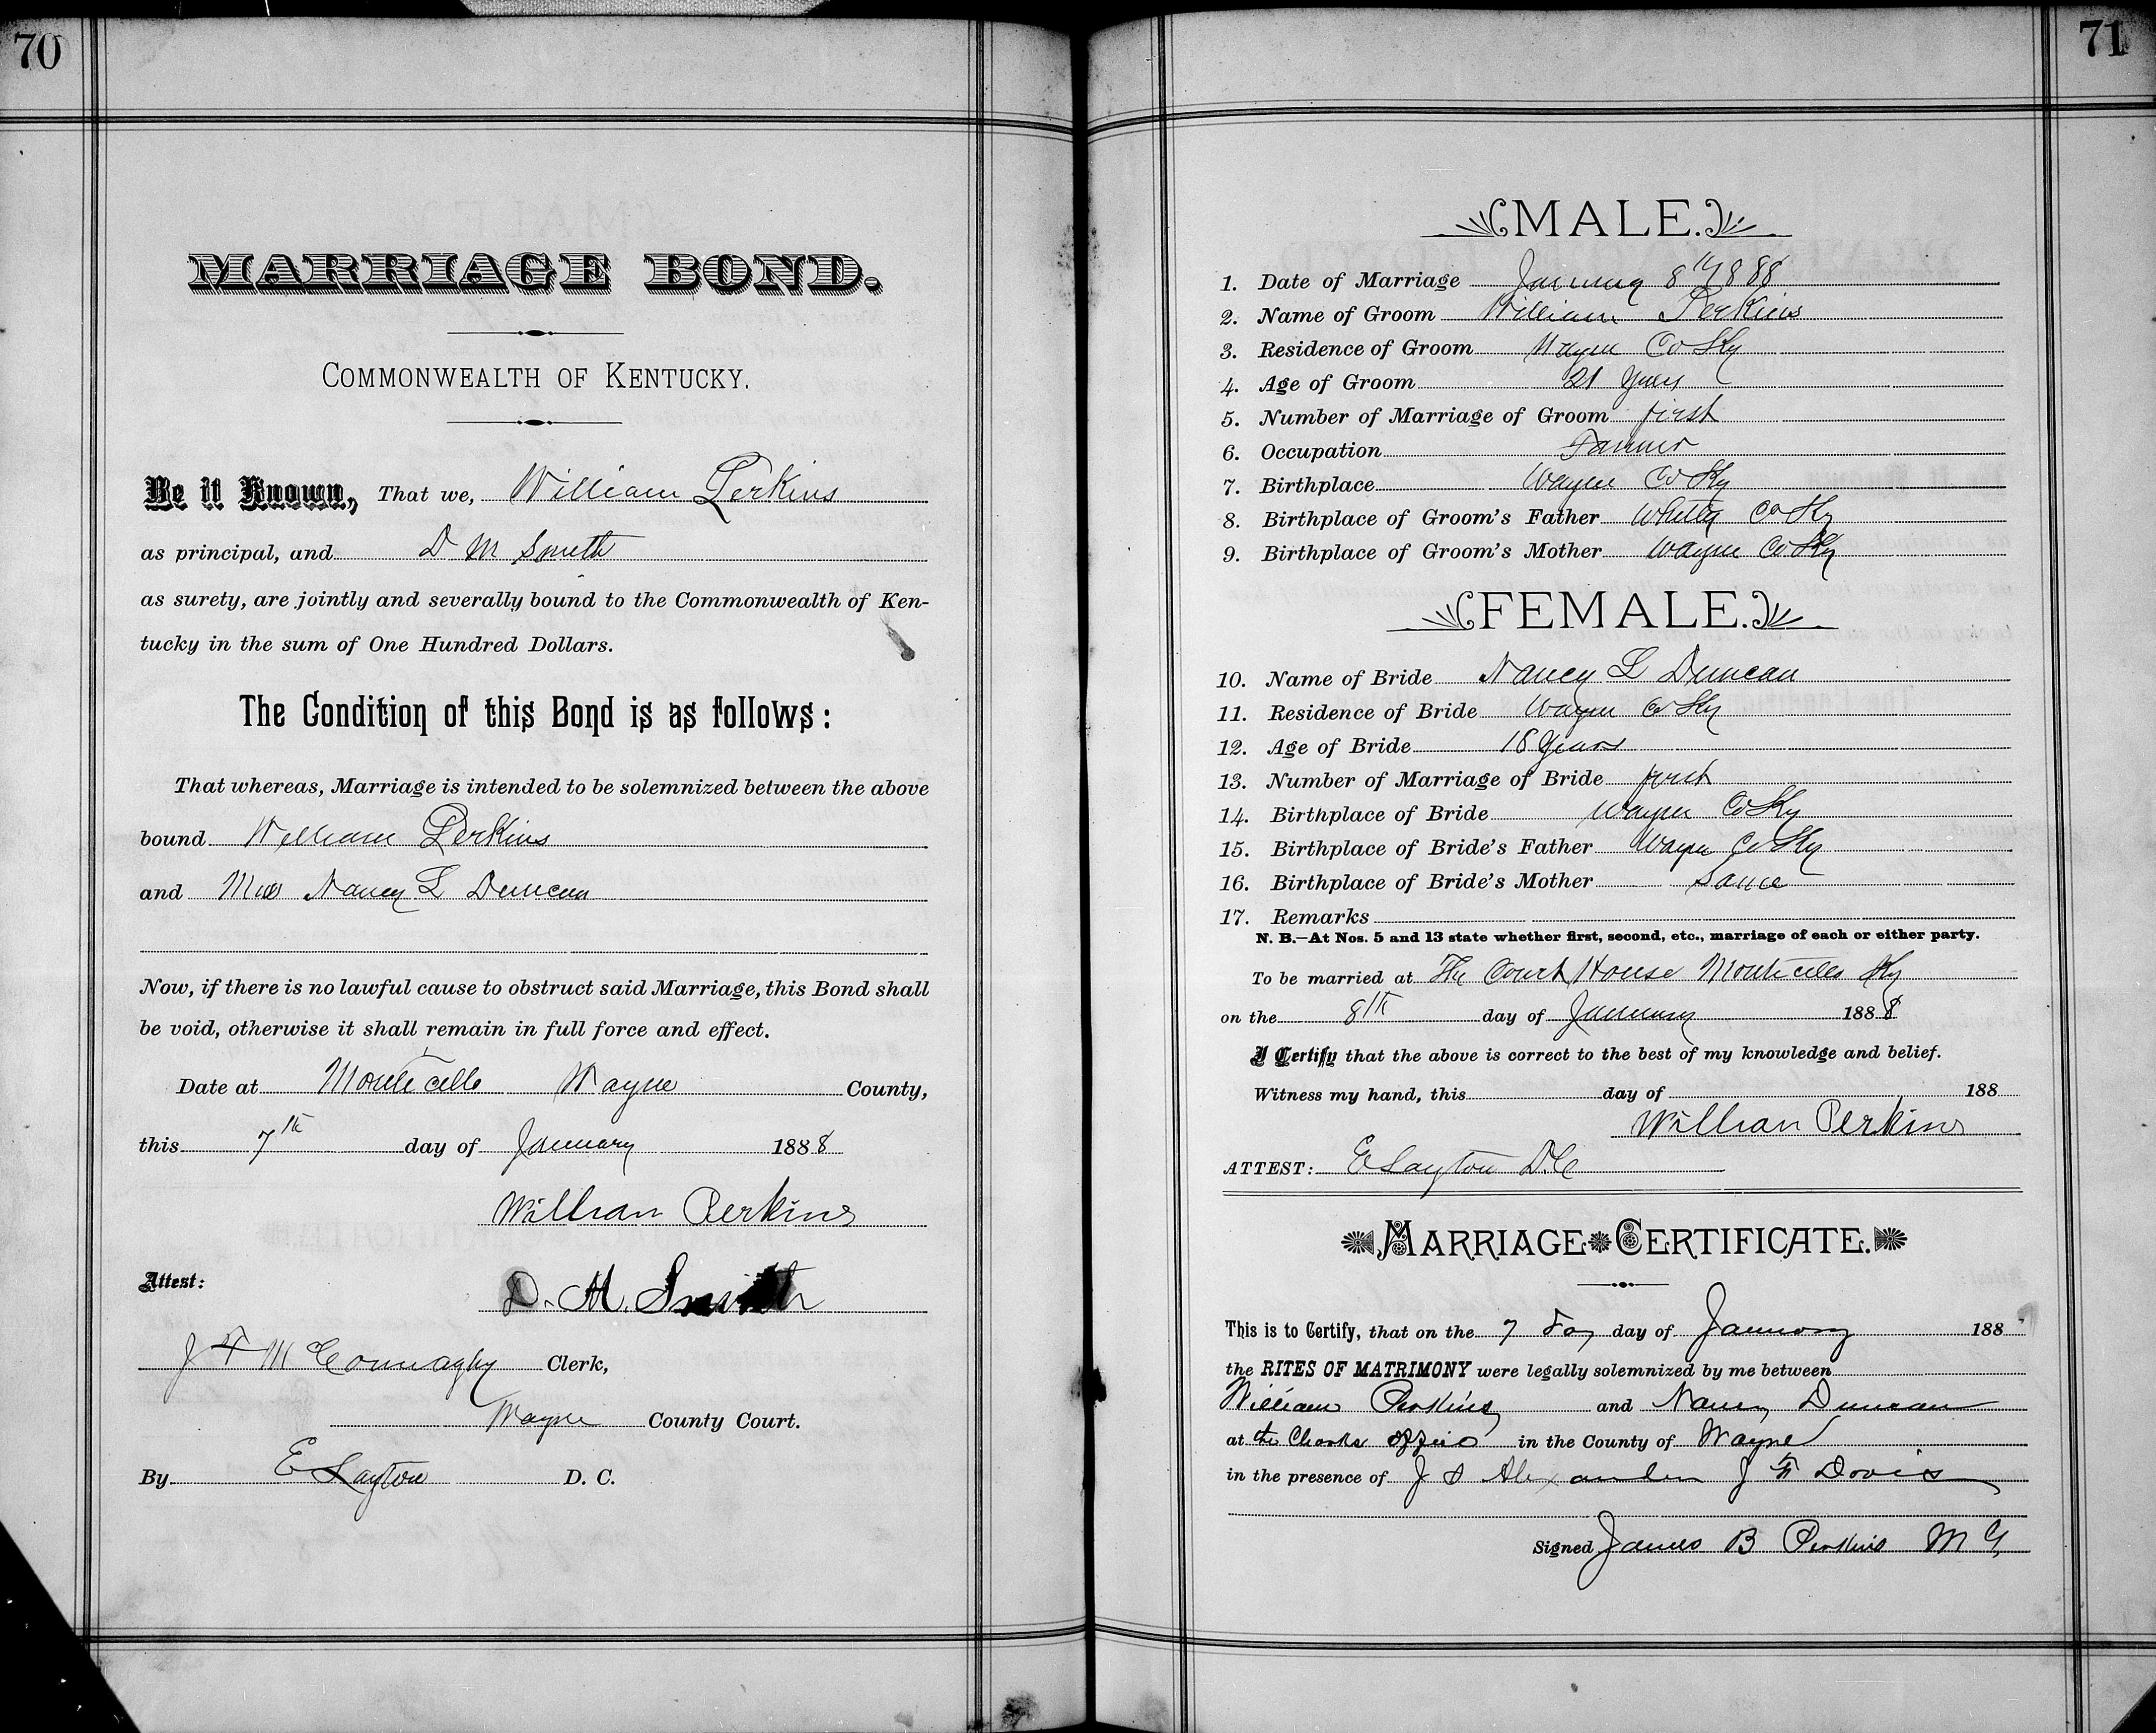 70
MARRIAGE BOND.
COMMONWEALTH OF KENTUCKY.
Be it Known, That we, William Perkins
as principal, and D M Smith
as surety, are jointly and severally bound to the Commonwealth of Ken-
tucky in the sum of One Hundred Dollars.
The Condition of this Bond is as follows:
That whereas, Marriage is intended to be solemnized between the above
bound William Perkins
and Miss Nancy L Duncan
Now, if there is no lawful cause to obstruct said Marriage, this Bond shall
be void, otherwise it shall remain in full force and effect.
Date at Monticello Wayne County,
this 7th day of January 1888
William Perkins
Attest: D. M. Smith
J F McConnaghy Clerk,
Wayne County Court.
By E Layton D. C.
71
MALE.
1. Date of Marriage January 8th 1888
2. Name of Groom William Perkins
3. Residence of Groom Wayne Co Ky
4. Age of Groom 21 years
5. Number of Marriage of Groom first
6. Occupation Farmer
7. Birthplace Wayne Co Ky
8. Birthplace of Groom's Father Co Ky
9. Birthplace of Groom's Mother Wayne Co Ky
FEMALE.
10. Name of Bride Nancy L Duncan
11. Residence of Bride Wayne Co Ky
12. Age of Bride 18 years
13. Number of Marriage of Bride first
14. Birthplace of Bride Wayne Co Ky
15. Birthplace of Bride's Father Wayne Co Ky
16. Birthplace of Bride's Mother Same
17. Remarks
N. B.—At Nos. 5 and 13 state whether first, second, etc., marriage of each or either party.
To be married at The Court House Monticello Ky
on the 8th day of January 1888
I Certify that the above is correct to the best of my knowledge and belief.
Witness my hand, this day of 188
William Perkins
ATTEST: E Layton D.C
MARRIAGE CERTIFICATE.
This is to Certify, that on the 7 day of January 188
the RITES OF MATRIMONY were legally solemnized by me between
William Perkins and Nancy Duncan
at the in the County of Wayne
in the presence of J S Alexander J F Davis
Signed James B Perkins M G